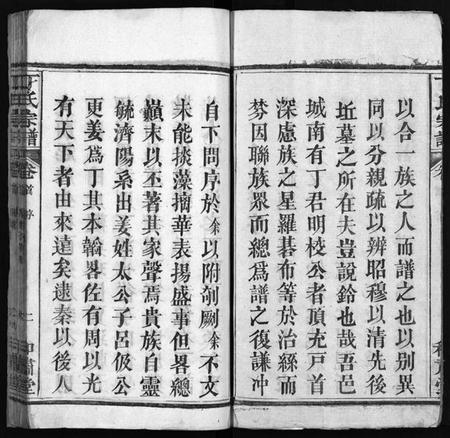 以合一族之人而譜之也以別異
同以分親疏以辨昭穆以清先後
坵墓之所在夫豈說鈴也哉吾邑
城南有丁君明校公者頂充戶首
深慮族之星羅碁布等於治絲而
棼因聯族眾而總爲譜之復謙冲
自下問序於余以附剞劂余不文
未能掞藻摛華表揚盛事但畧總
巔末以丕著其家聲焉貴族自靈
毓濟陽系出姜姓太公子呂伋公
更姜爲丁其本翰畧佐有周以光
有天下者由來遠矣逮秦以後人
丁氏宗譜
卷首
序